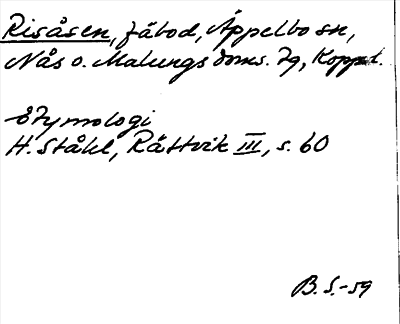 Risåsen, fäbod, Äppelbo sn,
Nås o. Malungs doms. 79, Koppbl.
Etymologi
H. Ståhl, Rättvik III, s. 60
B. S. -59